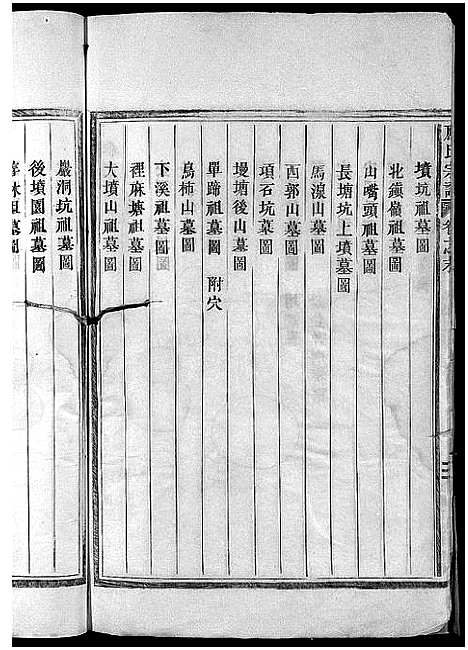 氏宗譜
墳坑祖墓圖
北鎮嶺祖墓圖
山嘴頭祖墓圖
長塘坑上墳墓圖
馬湶山墓圖
西郭山墓圖
項石坑墓圖
墁塘後山墓圖
單蹄祖墓圖 附穴
烏柿山墓圖
下溪祖墓圖
裡麻塘祖墓圖
大墳山祖墓圖
巖洞坑祖墓圖
後墳園祖墓圖
林祖墓圖